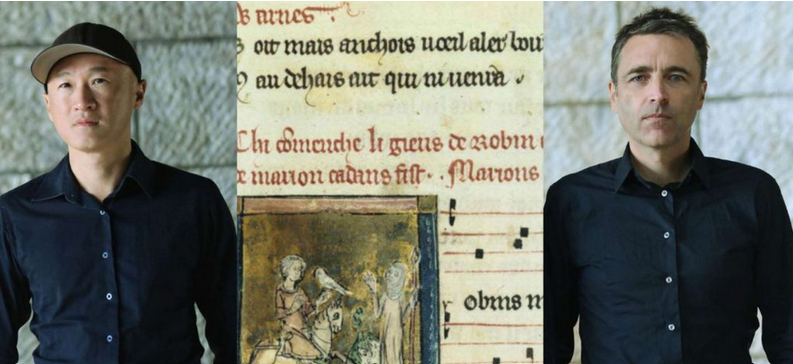 mais anchois uoeil aler
au dehais ait qui ni uenra .
Chi comenche li gieus de Robin
marion cadans fist . . Marions
obins m